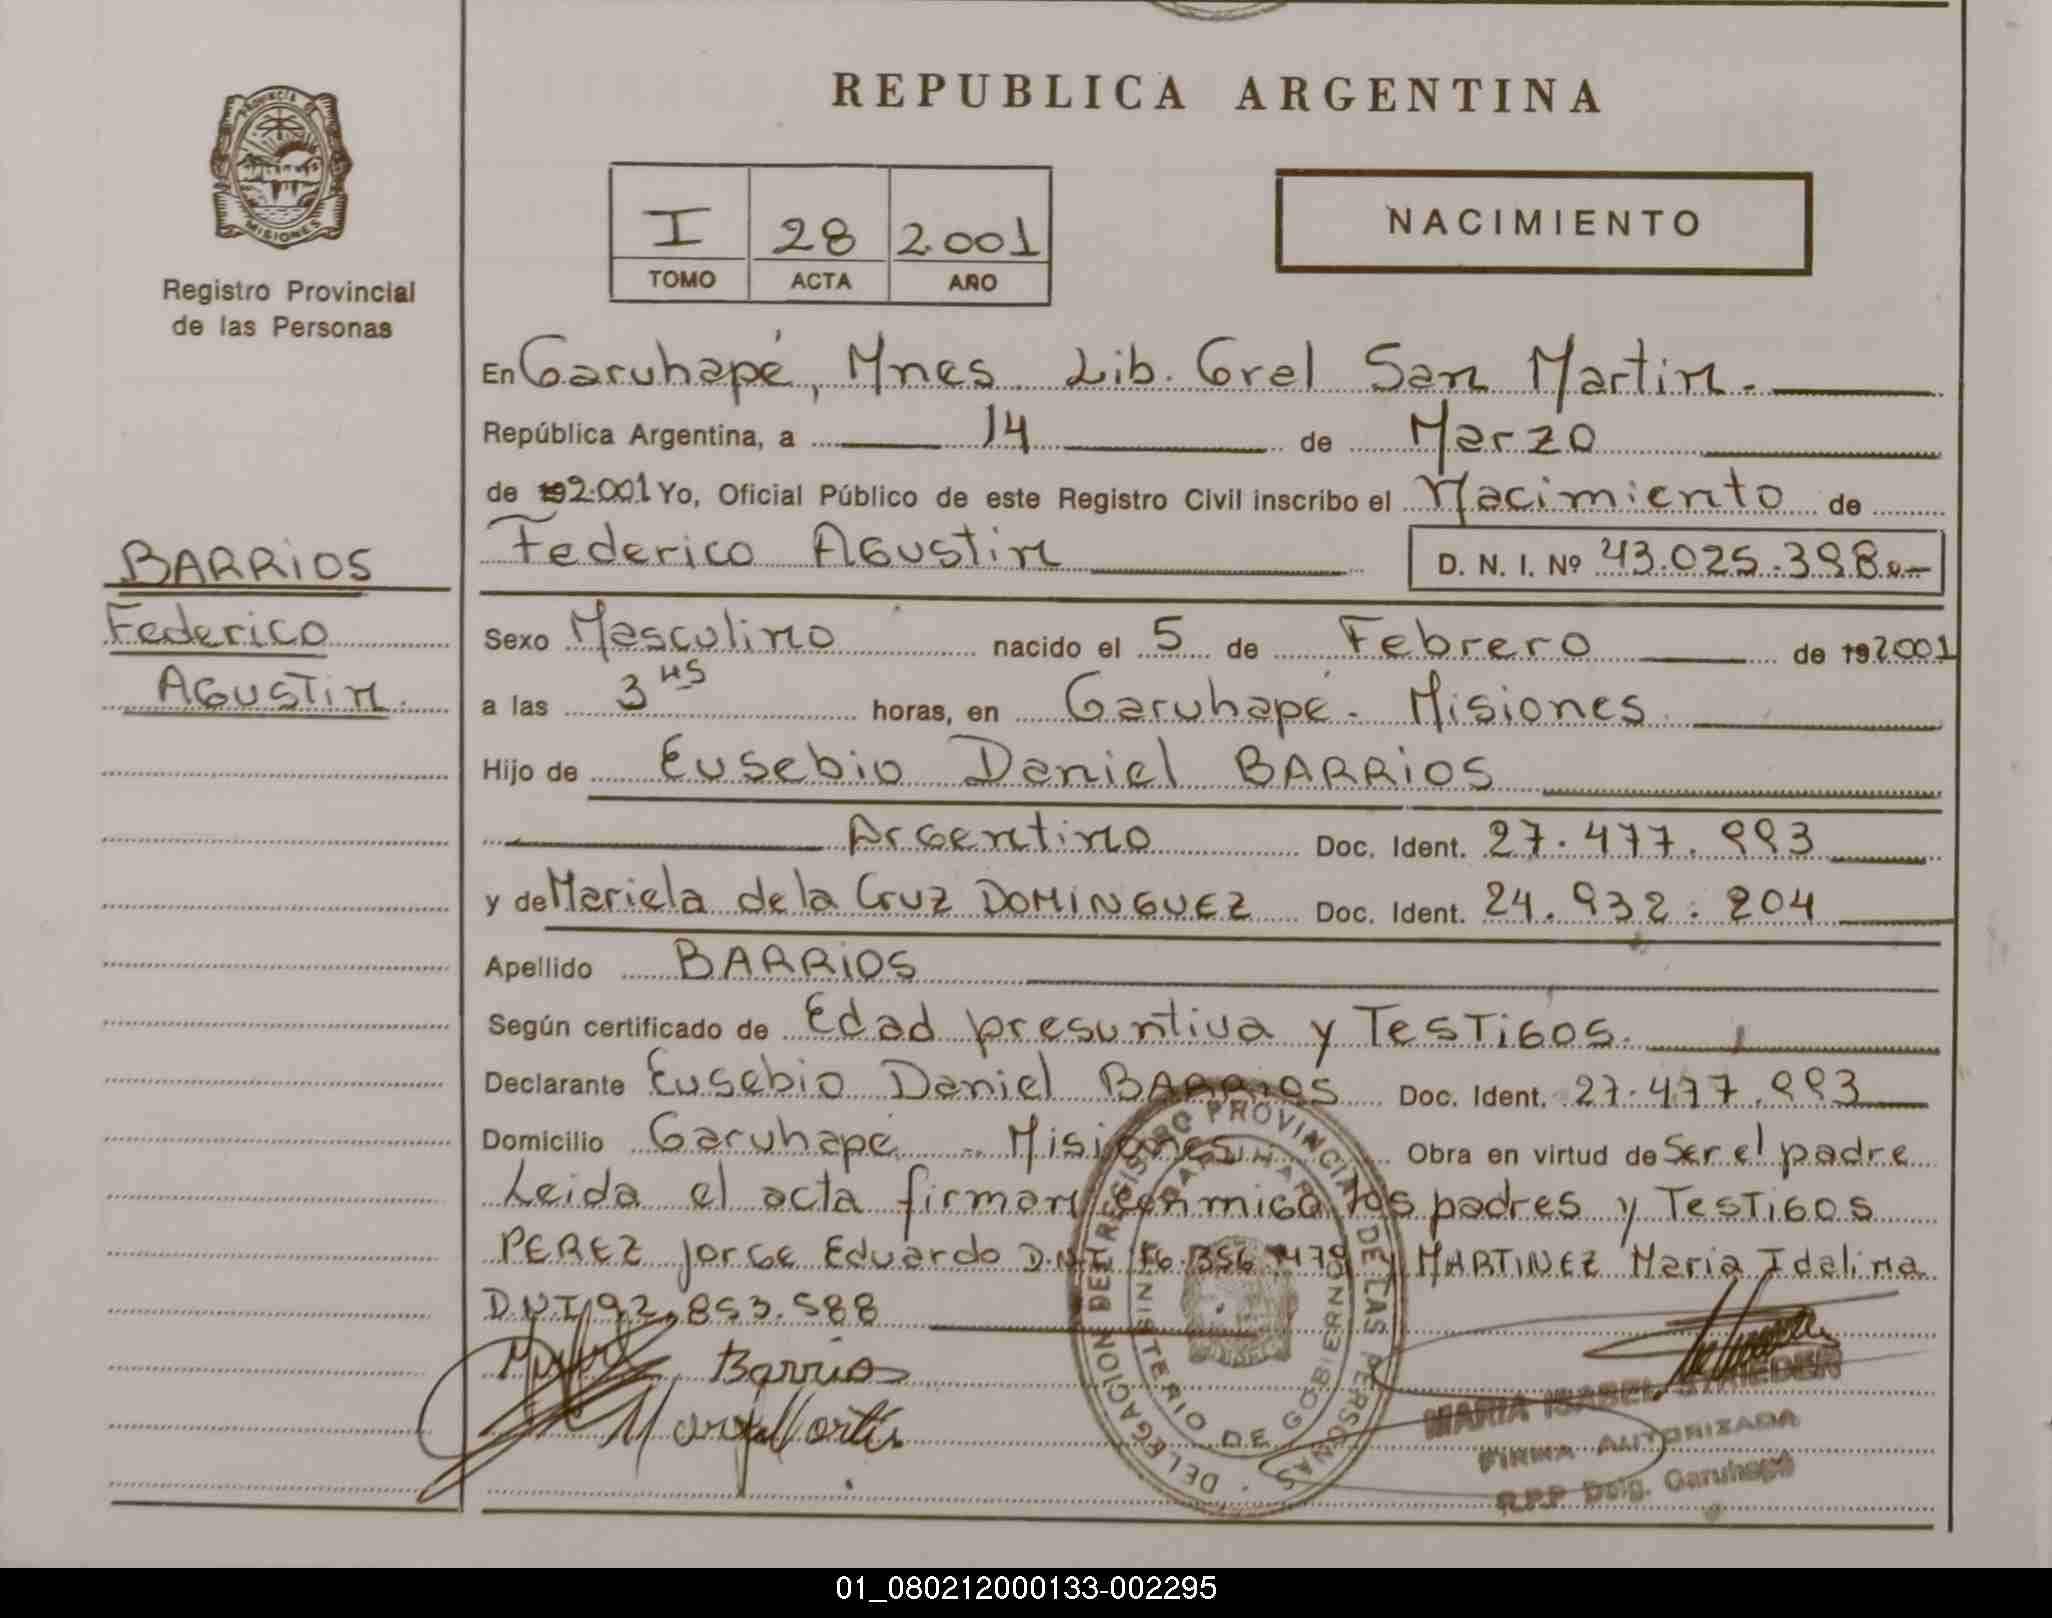 REPUBLICA ARGENTINA
PROVINCIA DE MISIONES
Registro Provincial
de las Personas
I 28 2.001
TOMO ACTA AÑO
NACIMIENTO
BARRIOS
Federico
Agustin.
En Garuhapé, Mnes. Lib. Grel San Martin.
República Argentina, a 14 de Marzo
de 192.001 Yo, Oficial Público de este Registro Civil inscribo el Nacimiento de
Federico Agustin D. N. I. Nº 43.025.398.-
Sexo Masculino nacido el 5 de Febrero de 192001
a las 3 45 horas, en Garuhapé - Misiones
Hijo de Eusebio Daniel BARRIOS
Argentino Doc. Ident. 27.477.993
y de Mariela de la Cruz DOMINGUEZ Doc. Ident. 24.932.204
Apellido BARRIOS
Según certificado de Edad presuntiva y Testigos.
Declarante Eusebio Daniel BARRIOS Doc. Ident. 27.477.993
Domicilio Garuhapé - Misiones Obra en virtud de Ser el padre
Leida el acta firman conmigo los padres y Testigos
PEREZ Jorge Eduardo D.N.I 16.356.479 y MARTINEZ Maria Idalina
D.N.I 92.853.588
Barrios
DELEGACION DEL REGISTRO PROVINCIAL DE LAS PERSONAS
GARUHAPE
MINISTERIO DE GOBIERNO
MARIA ISABEL STRIEDER
FIRMA AUTORIZADA
R.P.P Delg. Garuhapé
01_080212000133-002295